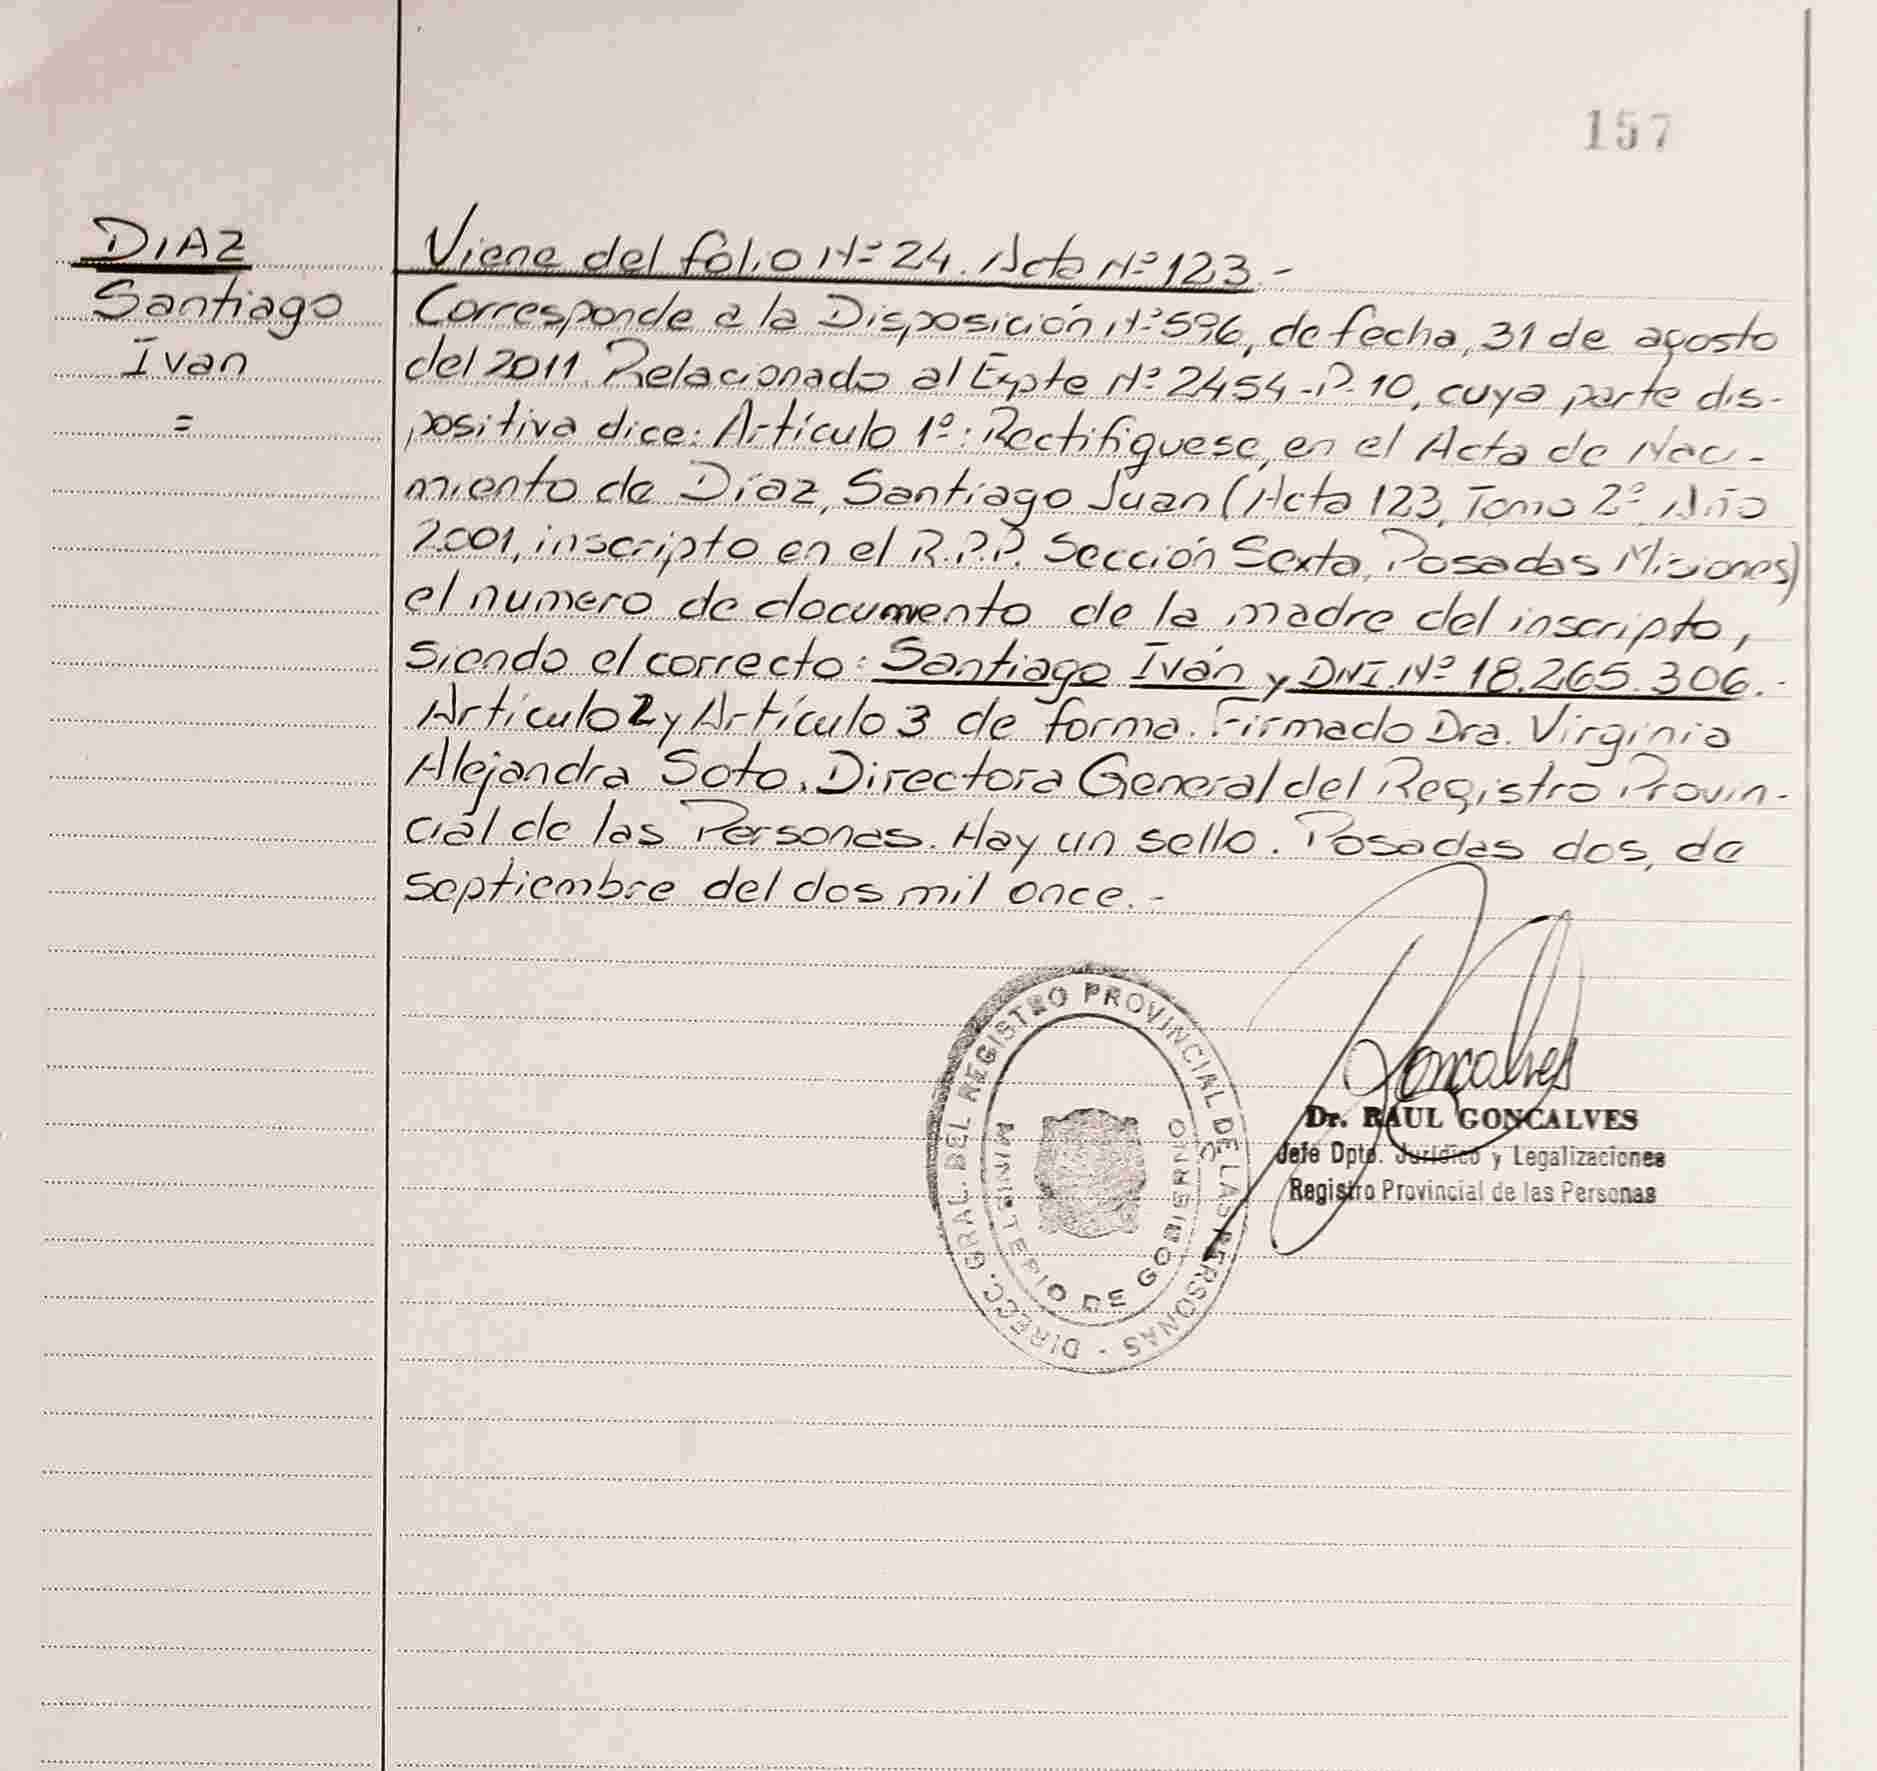 157
DIAZ
Santiago
Ivan
=
Viene del folio Nº 24. Acta Nº 123.-
Corresponde a la Disposición Nº 596, de fecha, 31 de agosto
del 2011. Relacionado al Expte Nº 2454-P-10, cuya parte dis-
positiva dice: Artículo 1º: Rectifiquese, en el Acta de Naci-
miento de Díaz, Santiago Juan (Acta 123, Tomo 2º, Año
2001, inscripto en el R.P.P. Sección Sexta, Posadas Misiones)
el numero de documento de la madre del inscripto,
siendo el correcto: Santiago Iván y DNI. Nº 18.265.306.-
Artículo 2 y Artículo 3 de forma. Firmado Dra. Virginia
Alejandra Soto. Directora General del Registro Provin-
cial de las Personas. Hay un sello. Posadas dos, de
septiembre del dos mil once.-
DIRECC. GRAL. DEL REGISTRO PROVINCIAL DE LAS PERSONAS -
MINISTERIO DE GOBIERNO
Goncalves
Dr. RAUL GONCALVES
Jefe Dpto. Jurídico y Legalizaciones
Registro Provincial de las Personas